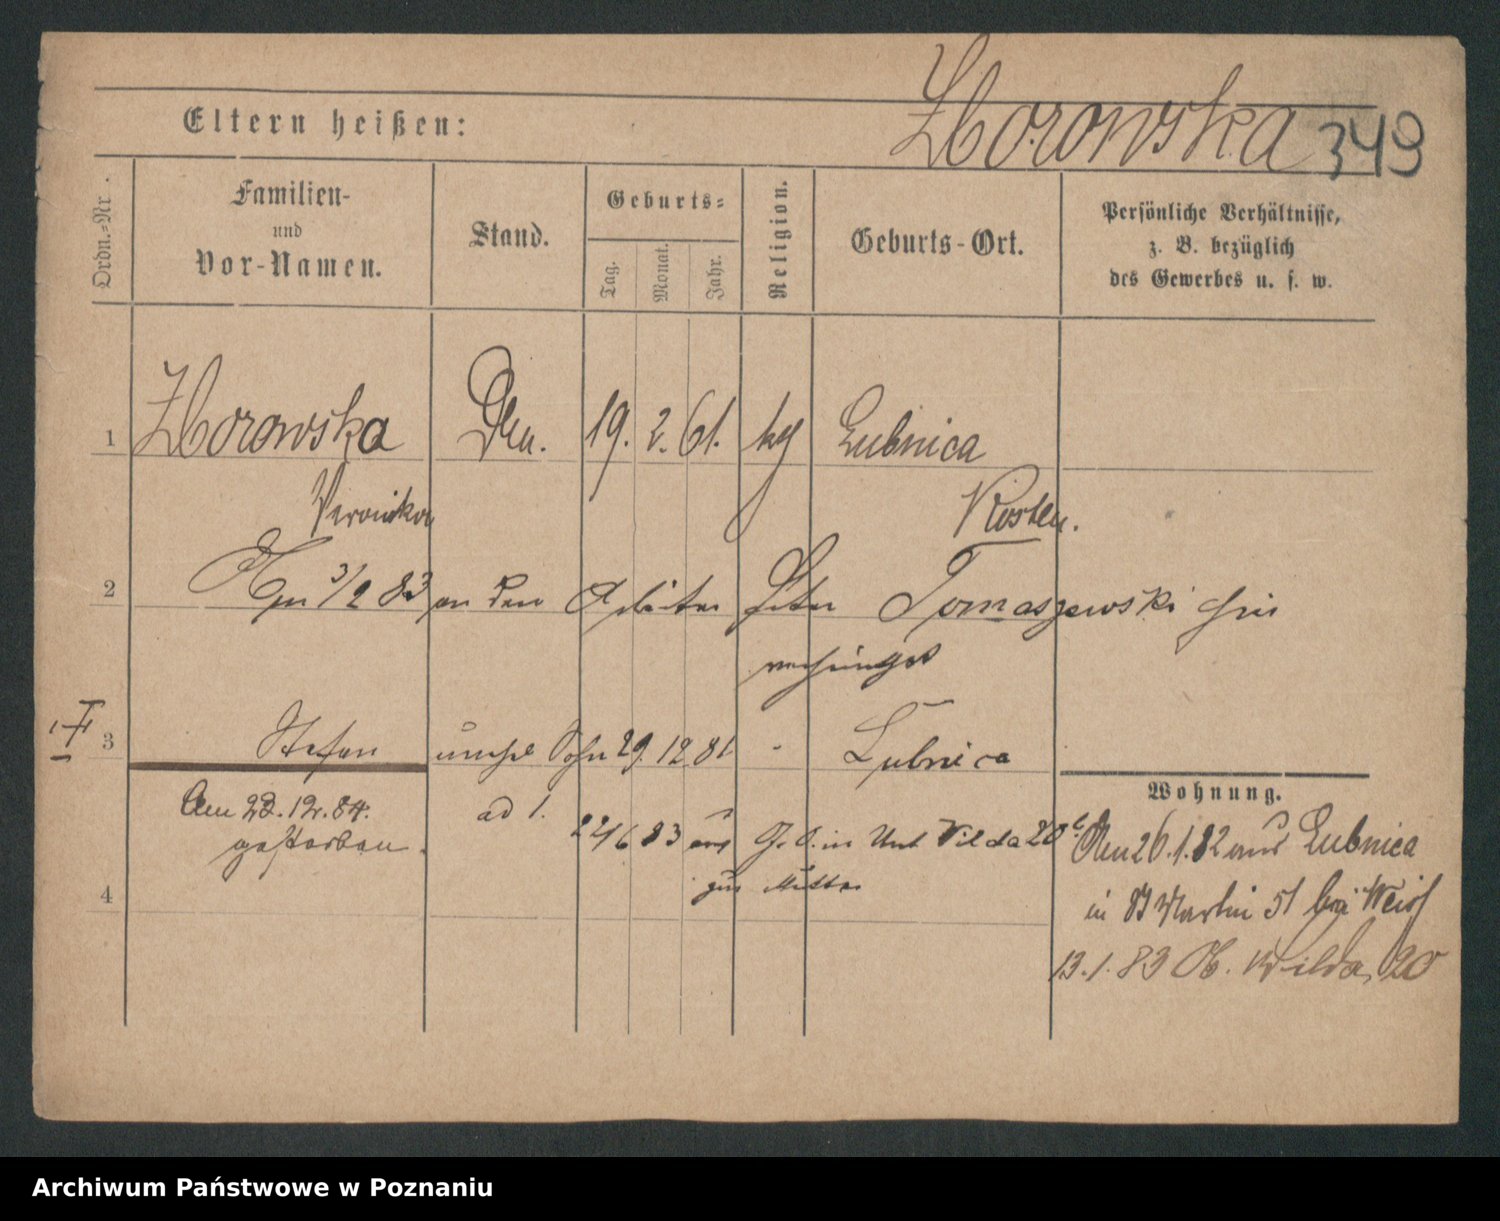 Zborowska 349
Eltern heißen:
Ordn.-Nr.
Familien-
und
Vor-Namen.
Stand.
Geburts-
Tag.
Monat.
Jahr.
Religion.
Geburts-Ort.
Persönliche Verhältnisse,
z. B. bezüglich
des Gewerbes u. s. w.
1 Zborowska 19. 2. 61. Lubnica
Veronika Kosten.
2 3/2 83 an den Arbeiter Peter Tomaszewski hier
verheirathet
3 Stefan unehel Sohn 29. 12 81 " Lubnica
Am 22. 12. 84.
gestorben.
ad 1. 22/6 83 aus in Unt Wilda 20
zur Mutter
4
Wohnung.
Am 26. 1. 82 aus Lubnica
in St Martin 51 bei Weiß
13. 1. 83 Ob. Wilda 20
Archiwum Państwowe w Poznaniu